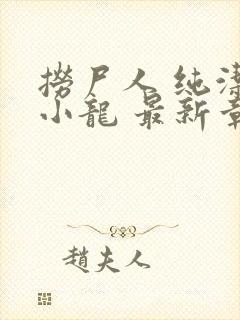 撈尸人 纯洁
小龍 最新章
趙夫人